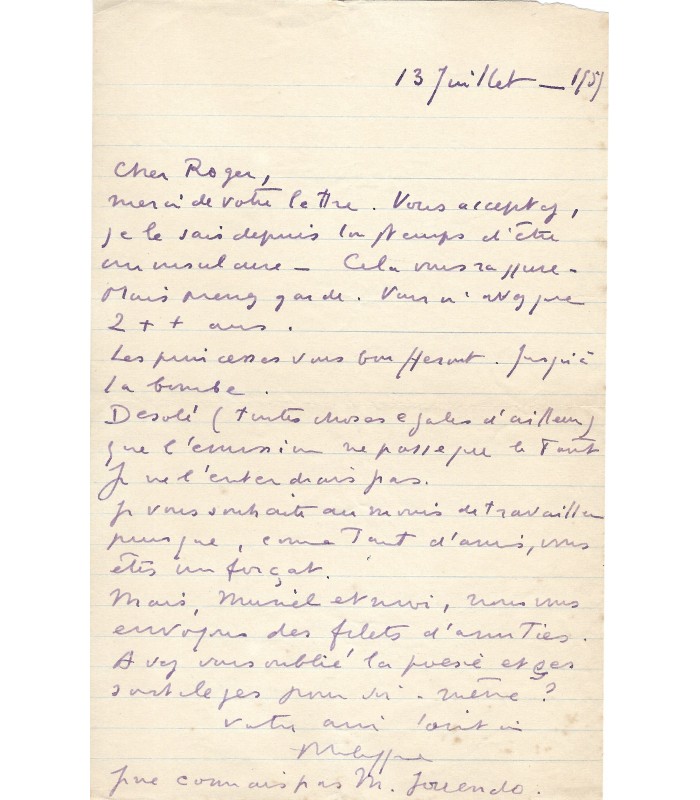 13 Juillet — 1959
Cher Roger,
merci de votre lettre. Vous acceptez,
je le sais depuis longtemps d'être
un insulaire — Cela vous rassure —
Mais prenez garde. Vous n'avez que
2 + + ans.
Les princesses vous boufferont. Jusqu'à
la bombe.
Desolé (toutes choses egales d'ailleurs)
que l'émission ne passe que le
Je ne l'entendrais pas.
Je vous souhaite au moins de travailler
puisque, comme Tant d'amis, vous
êtes un forçat.
Mais, Muriel et moi, nous vous
envoyons des filets d'amitiés.
Avez vous oublié la poesie et ses
sortileges pour soi-même ?
votre ami
Philippe
Je ne connais pas M.